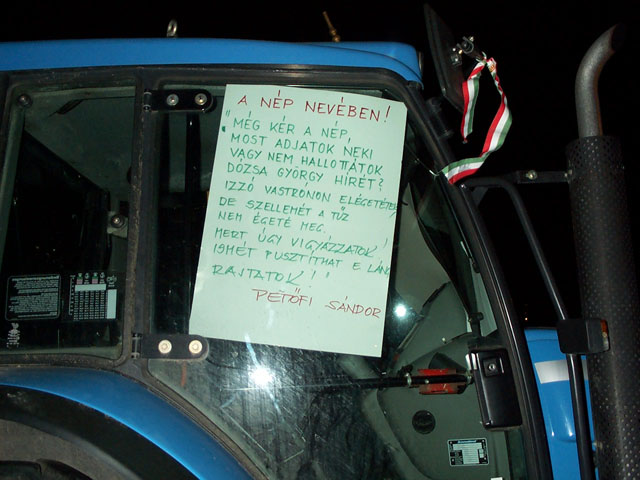 A NÉP NEVÉBEN!
"MÉG KÉR A NÉP,
MOST ADJATOK NEKI
VAGY NEM HALLOTTÁTOK
DÓZSA GYÖRGY HIRÉT?
IZZÓ VASTRÓNON ELÉGETÉTEK,
DE SZELLEMÉT A TŰZ
NEM ÉGETÉ MEG.
MERT ÚGY VIGYÁZZATOK!
ISMÉT PUSZTÍTHAT E LÁNG
RAJTATOK!"
PETŐFI SÁNDOR